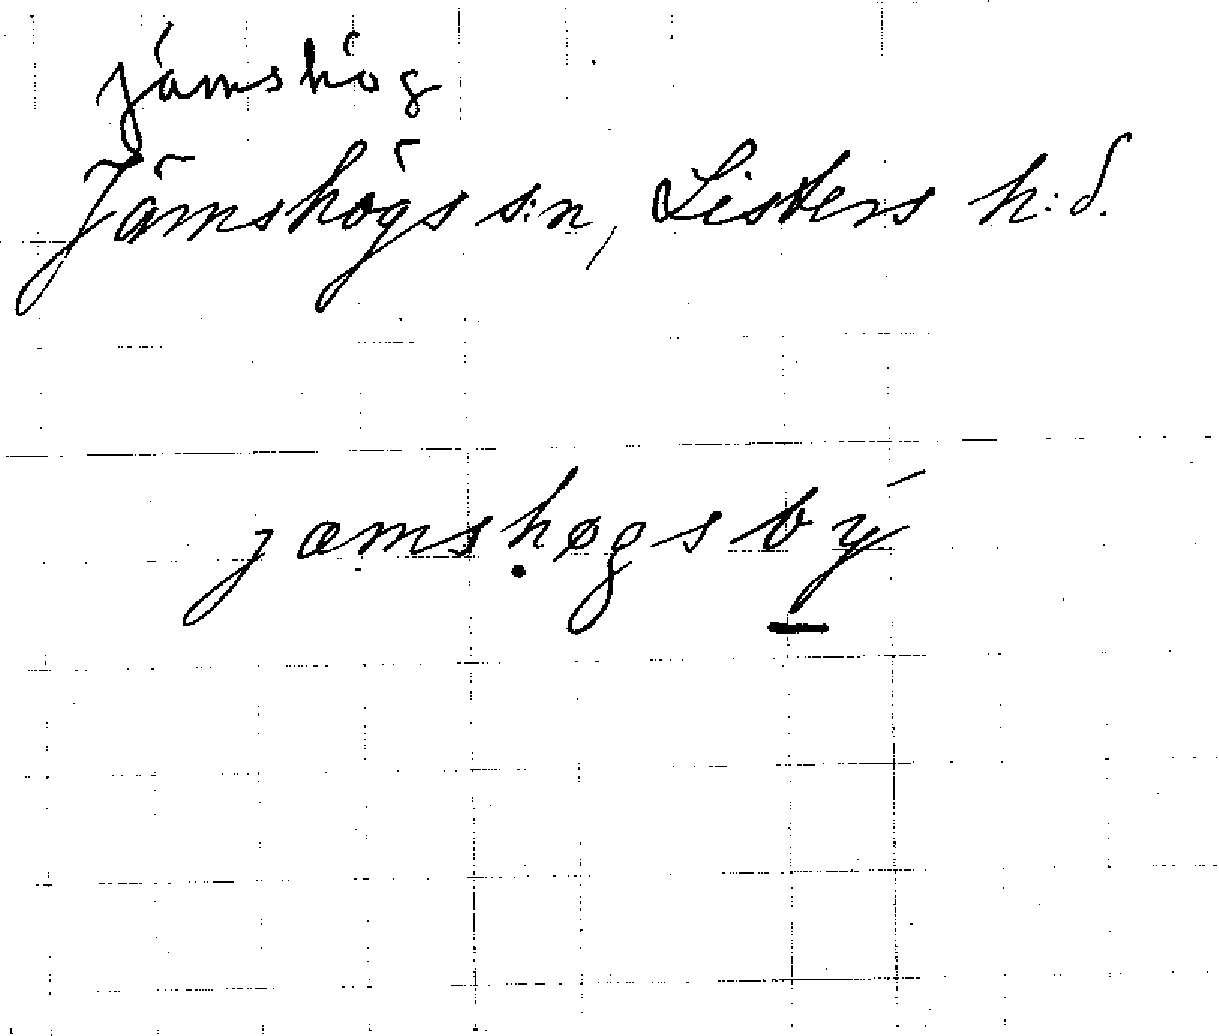 Jämshög
Jämshögs s:n, Listers h:d.
jæmshøgsbý